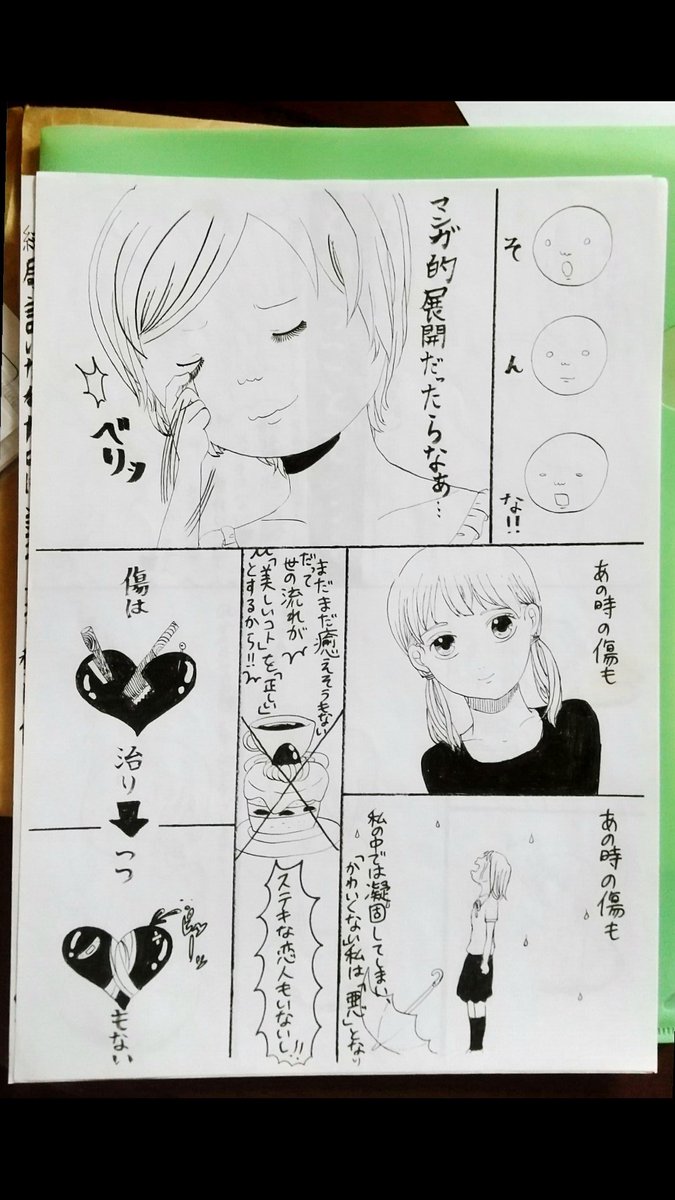 そ
ん
な!!
マンガ的展開だったらなぁ…
べリッ
あの時の傷も
あの時の傷も
私の中では凝固してしまい、
「かわいくない」私は「悪」となり
まだまだ癒えそうもない
だって
世の流れが
「美しいコト」を「正しい」
とするから!!
ステキな恋人もいないし!!
傷は
治り
つつ
もない